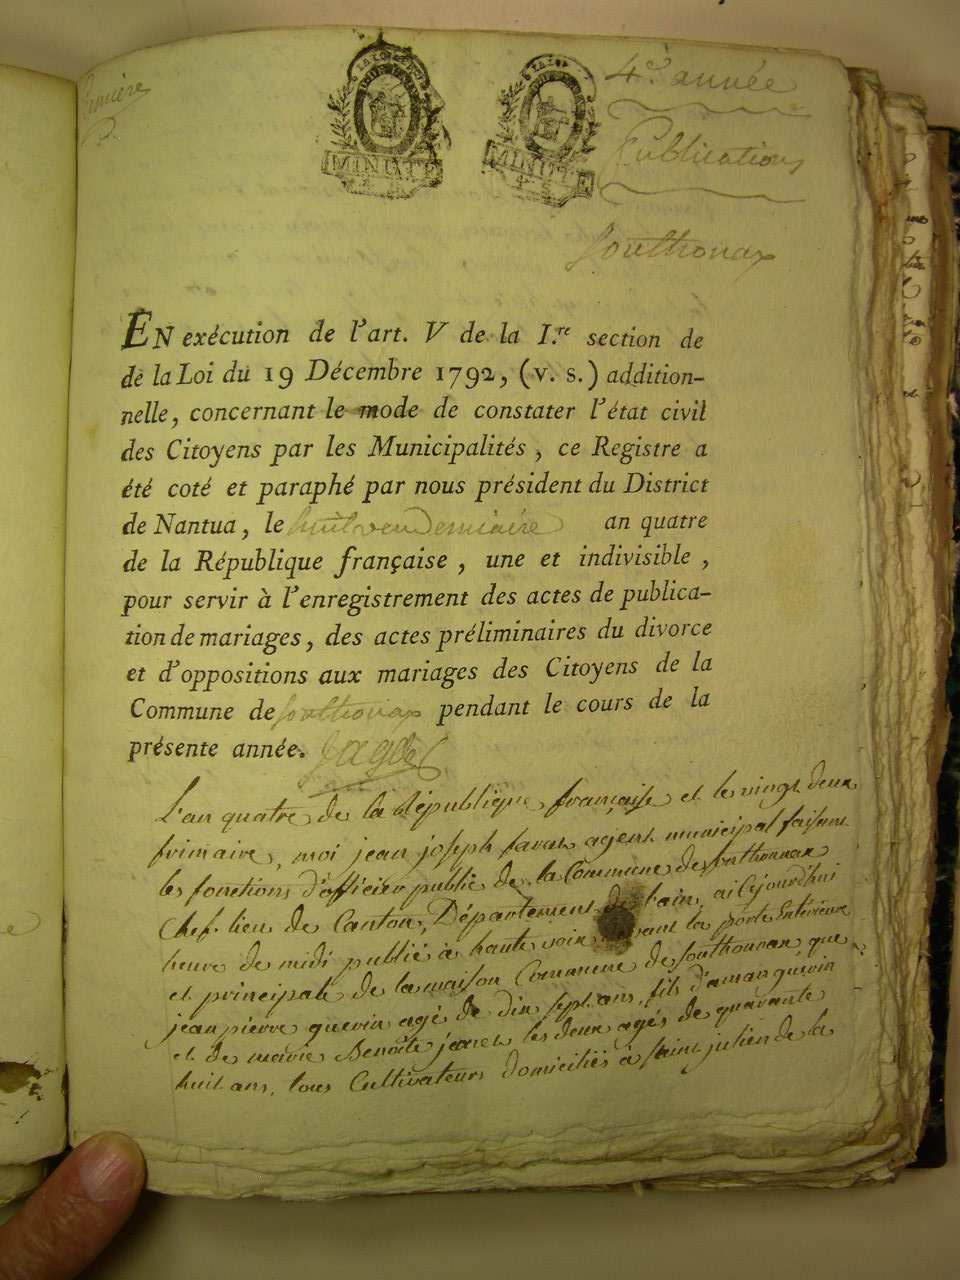 Première
MINUTE
MINUTE
4e année
Publications
Sonthonax
EN exécution de l'art. V de la I.re section de
de la Loi du 19 Décembre 1792, (v. s.) addition-
nelle, concernant le mode de constater l'état civil
des Citoyens par les Municipalités, ce Registre a
été coté et paraphé par nous président du District
de Nantua, le huit vendemiaire an quatre
de la République française, une et indivisible,
pour servir à l'enregistrement des actes de publica-
tion de mariages, des actes préliminaires du divorce
et d'oppositions aux mariages des Citoyens de la
Commune de Sonthonax pendant le cours de la
présente année.
L'an quatre de la République française et le vingt deux
frimaire, moi jean joseph savar agent municipal faisant
les fonctions d'officier public de la Commune de Sonthonnax
Chef lieu de Canton, Département de l'ain, ai cejourd'hui
heure de midi publié à haute voix devant la porte Entérieure
et principale de la maison Commune de Sonthonax que
jean pierre quevin agé de dix sept ans, fils d'aman quevin
et de marie Benoîte janet les deux agés de quarante
huit ans, tous Cultivateurs domiciliés à saint julien de la